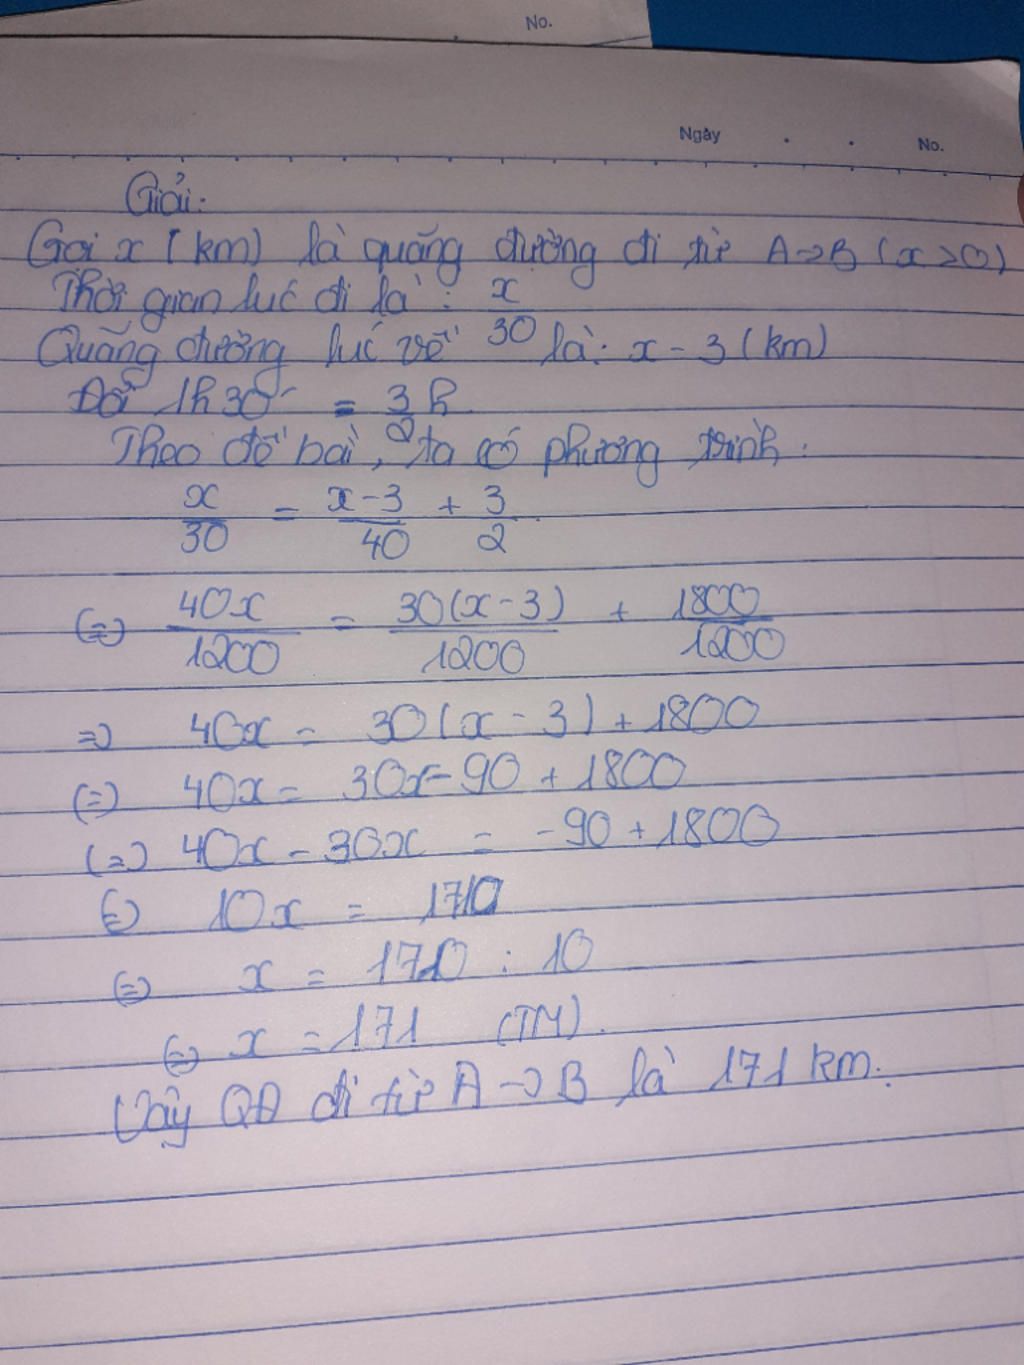 No.
Ngày . . No.
Giải:
Gọi x (km) là quãng đường đi từ A→B (x>0)
Thời gian lúc đi là: x/30
Quãng đường lúc về là: x - 3 (km)
Đổi 1h30' = 3/2 h
Theo đề bài, ta có phương trình:
x/30 = x-3/40 + 3/2
(=) 40x/1200 = 30(x-3)/1200 + 1800/1200
=) 40x = 30(x-3) + 1800
(=) 40x = 30x-90 + 1800
(=) 40x - 30x = -90 + 1800
(=) 10x = 1710
(=) x = 1710 : 10
(=) x = 171 (TM).
Vậy QĐ đi từ A→B là 171 km.